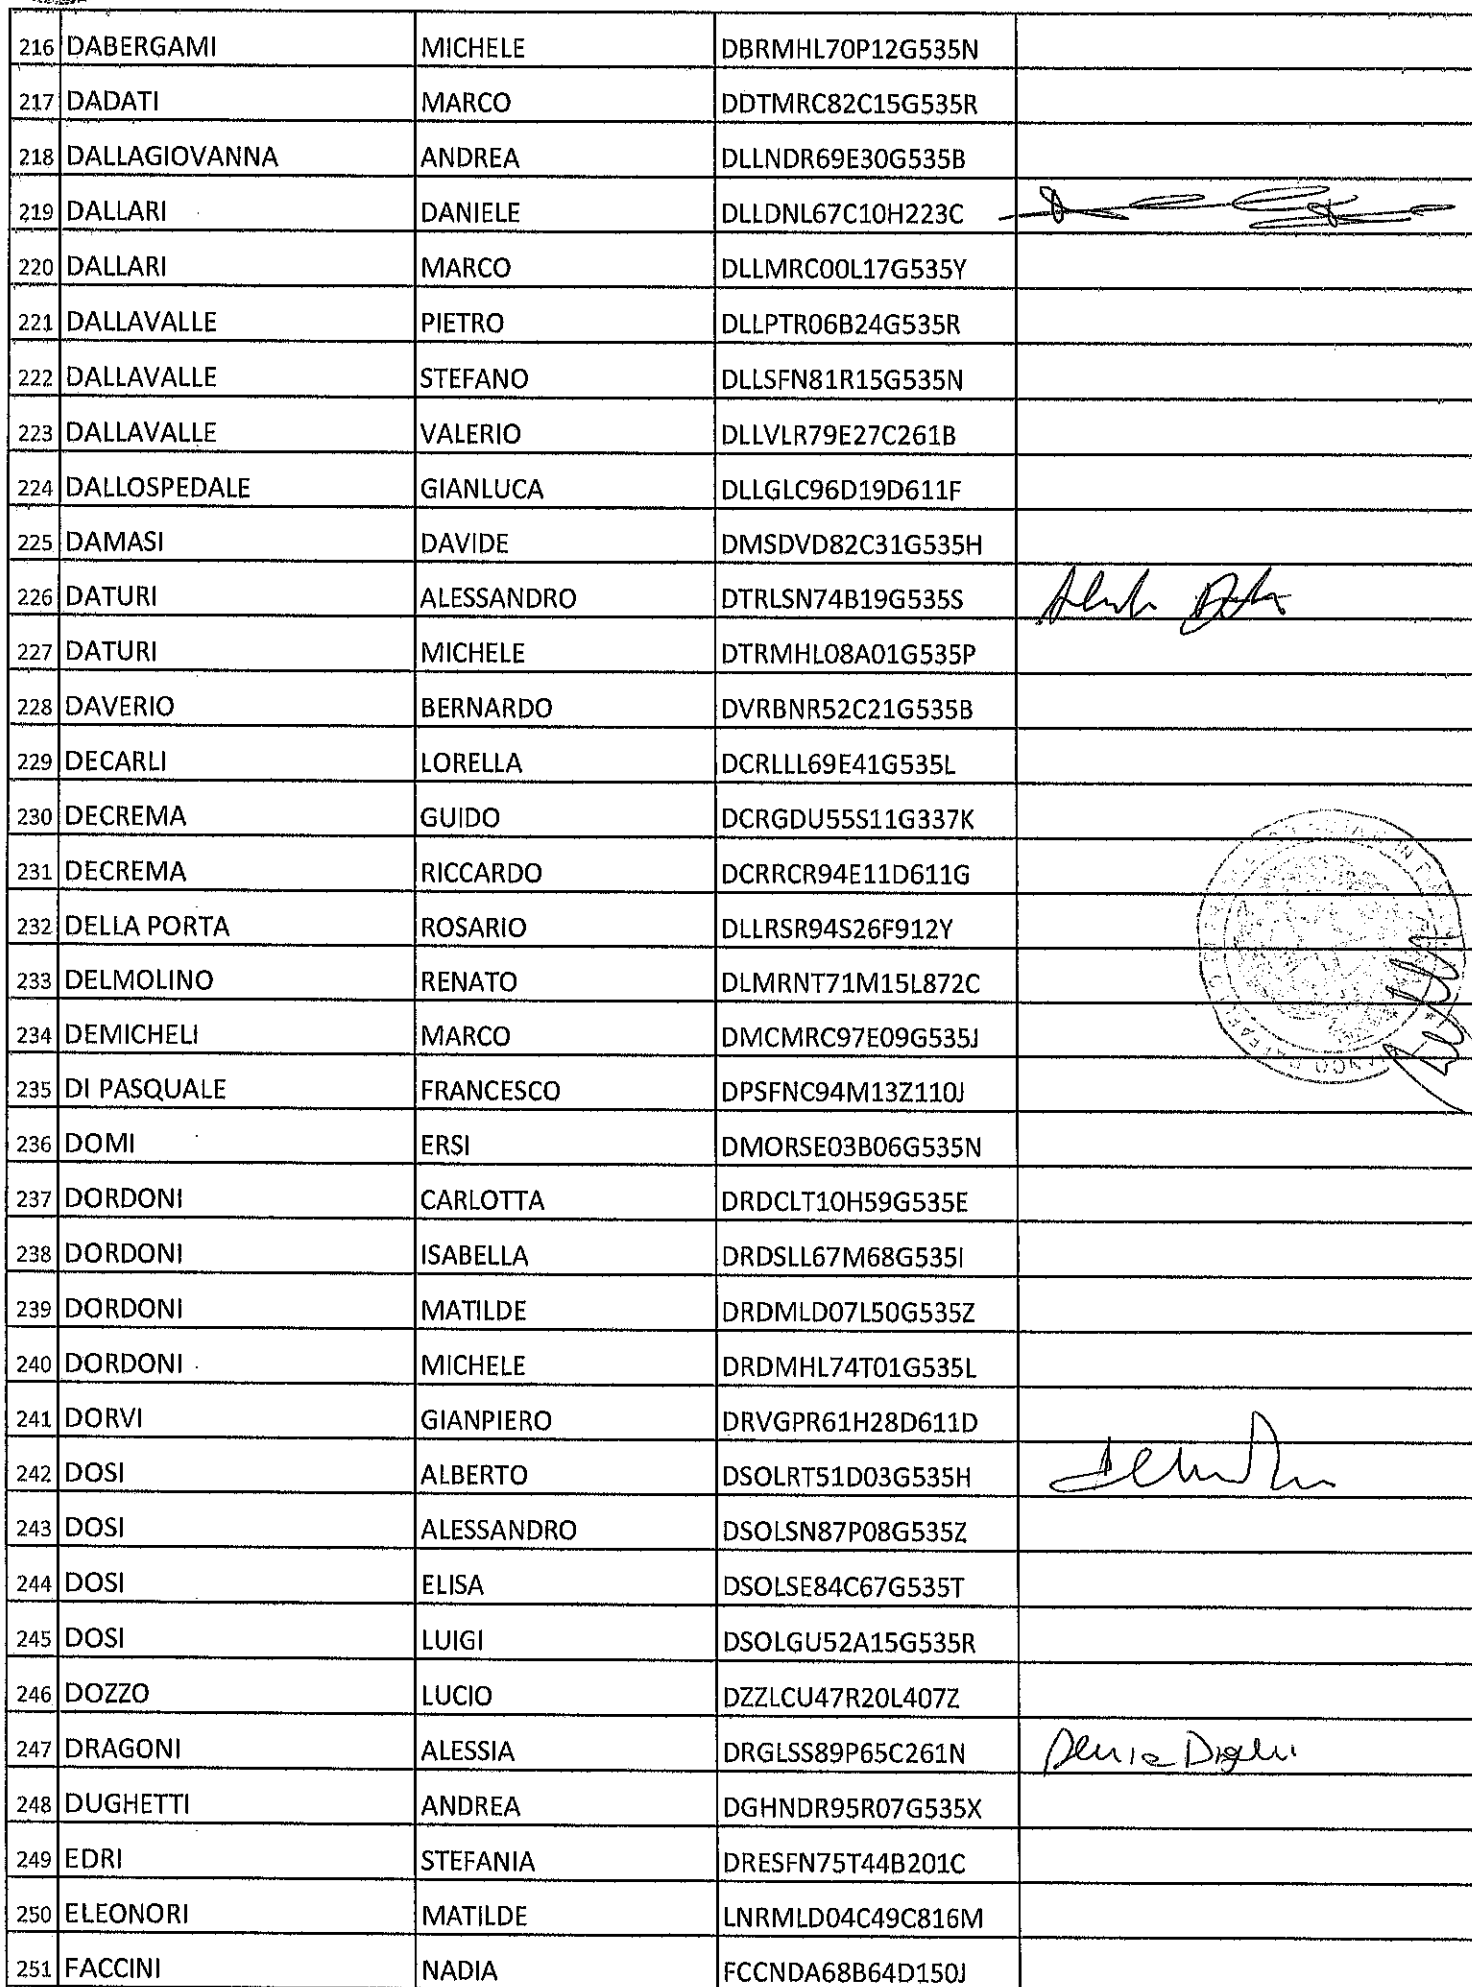 216 DABERGAMI MICHELE DBRMHL70P12G535N
217 DADATI MARCO DDTMRC82C15G535R
218 DALLAGIOVANNA ANDREA DLLNDR69E30G535B
219 DALLARI DANIELE DLLDNL67C10H223C
220 DALLARI MARCO DLLMRC00L17G535Y
221 DALLAVALLE PIETRO DLLPTR06B24G535R
222 DALLAVALLE STEFANO DLLSFN81R15G535N
223 DALLAVALLE VALERIO DLLVLR79E27C261B
224 DALLOSPEDALE GIANLUCA DLLGLC96D19D611F
225 DAMASI DAVIDE DMSDVD82C31G535H
226 DATURI ALESSANDRO DTRLSN74B19G535S
227 DATURI MICHELE DTRMHL08A01G535P
228 DAVERIO BERNARDO DVRBNR52C21G535B
229 DECARLI LORELLA DCRLLL69E41G535L
230 DECREMA GUIDO DCRGDU55S11G337K
231 DECREMA RICCARDO DCRRCR94E11D611G
232 DELLA PORTA ROSARIO DLLRSR94S26F912Y
233 DELMOLINO RENATO DLMRNT71M15L872C
234 DEMICHELI MARCO DMCMRC97E09G535J
235 DI PASQUALE FRANCESCO DPSFNC94M13Z110J
236 DOMI ERSI DMORSE03B06G535N
237 DORDONI CARLOTTA DRDCLT10H59G535E
238 DORDONI ISABELLA DRDSLL67M68G535I
239 DORDONI MATILDE DRDMLD07L50G535Z
240 DORDONI MICHELE DRDMHL74T01G535L
241 DORVI GIANPIERO DRVGPR61H28D611D
242 DOSI ALBERTO DSOLRT51D03G535H
243 DOSI ALESSANDRO DSOLSN87P08G535Z
244 DOSI ELISA DSOLSE84C67G535T
245 DOSI LUIGI DSOLGU52A15G535R
246 DOZZO LUCIO DZZLCU47R20L407Z
247 DRAGONI ALESSIA DRGLSS89P65C261N
248 DUGHETTI ANDREA DGHNDR95R07G535X
249 EDRI STEFANIA DRESFN75T44B201C
250 ELEONORI MATILDE LNRMLD04C49C816M
251 FACCINI NADIA FCCNDA68B64D150J